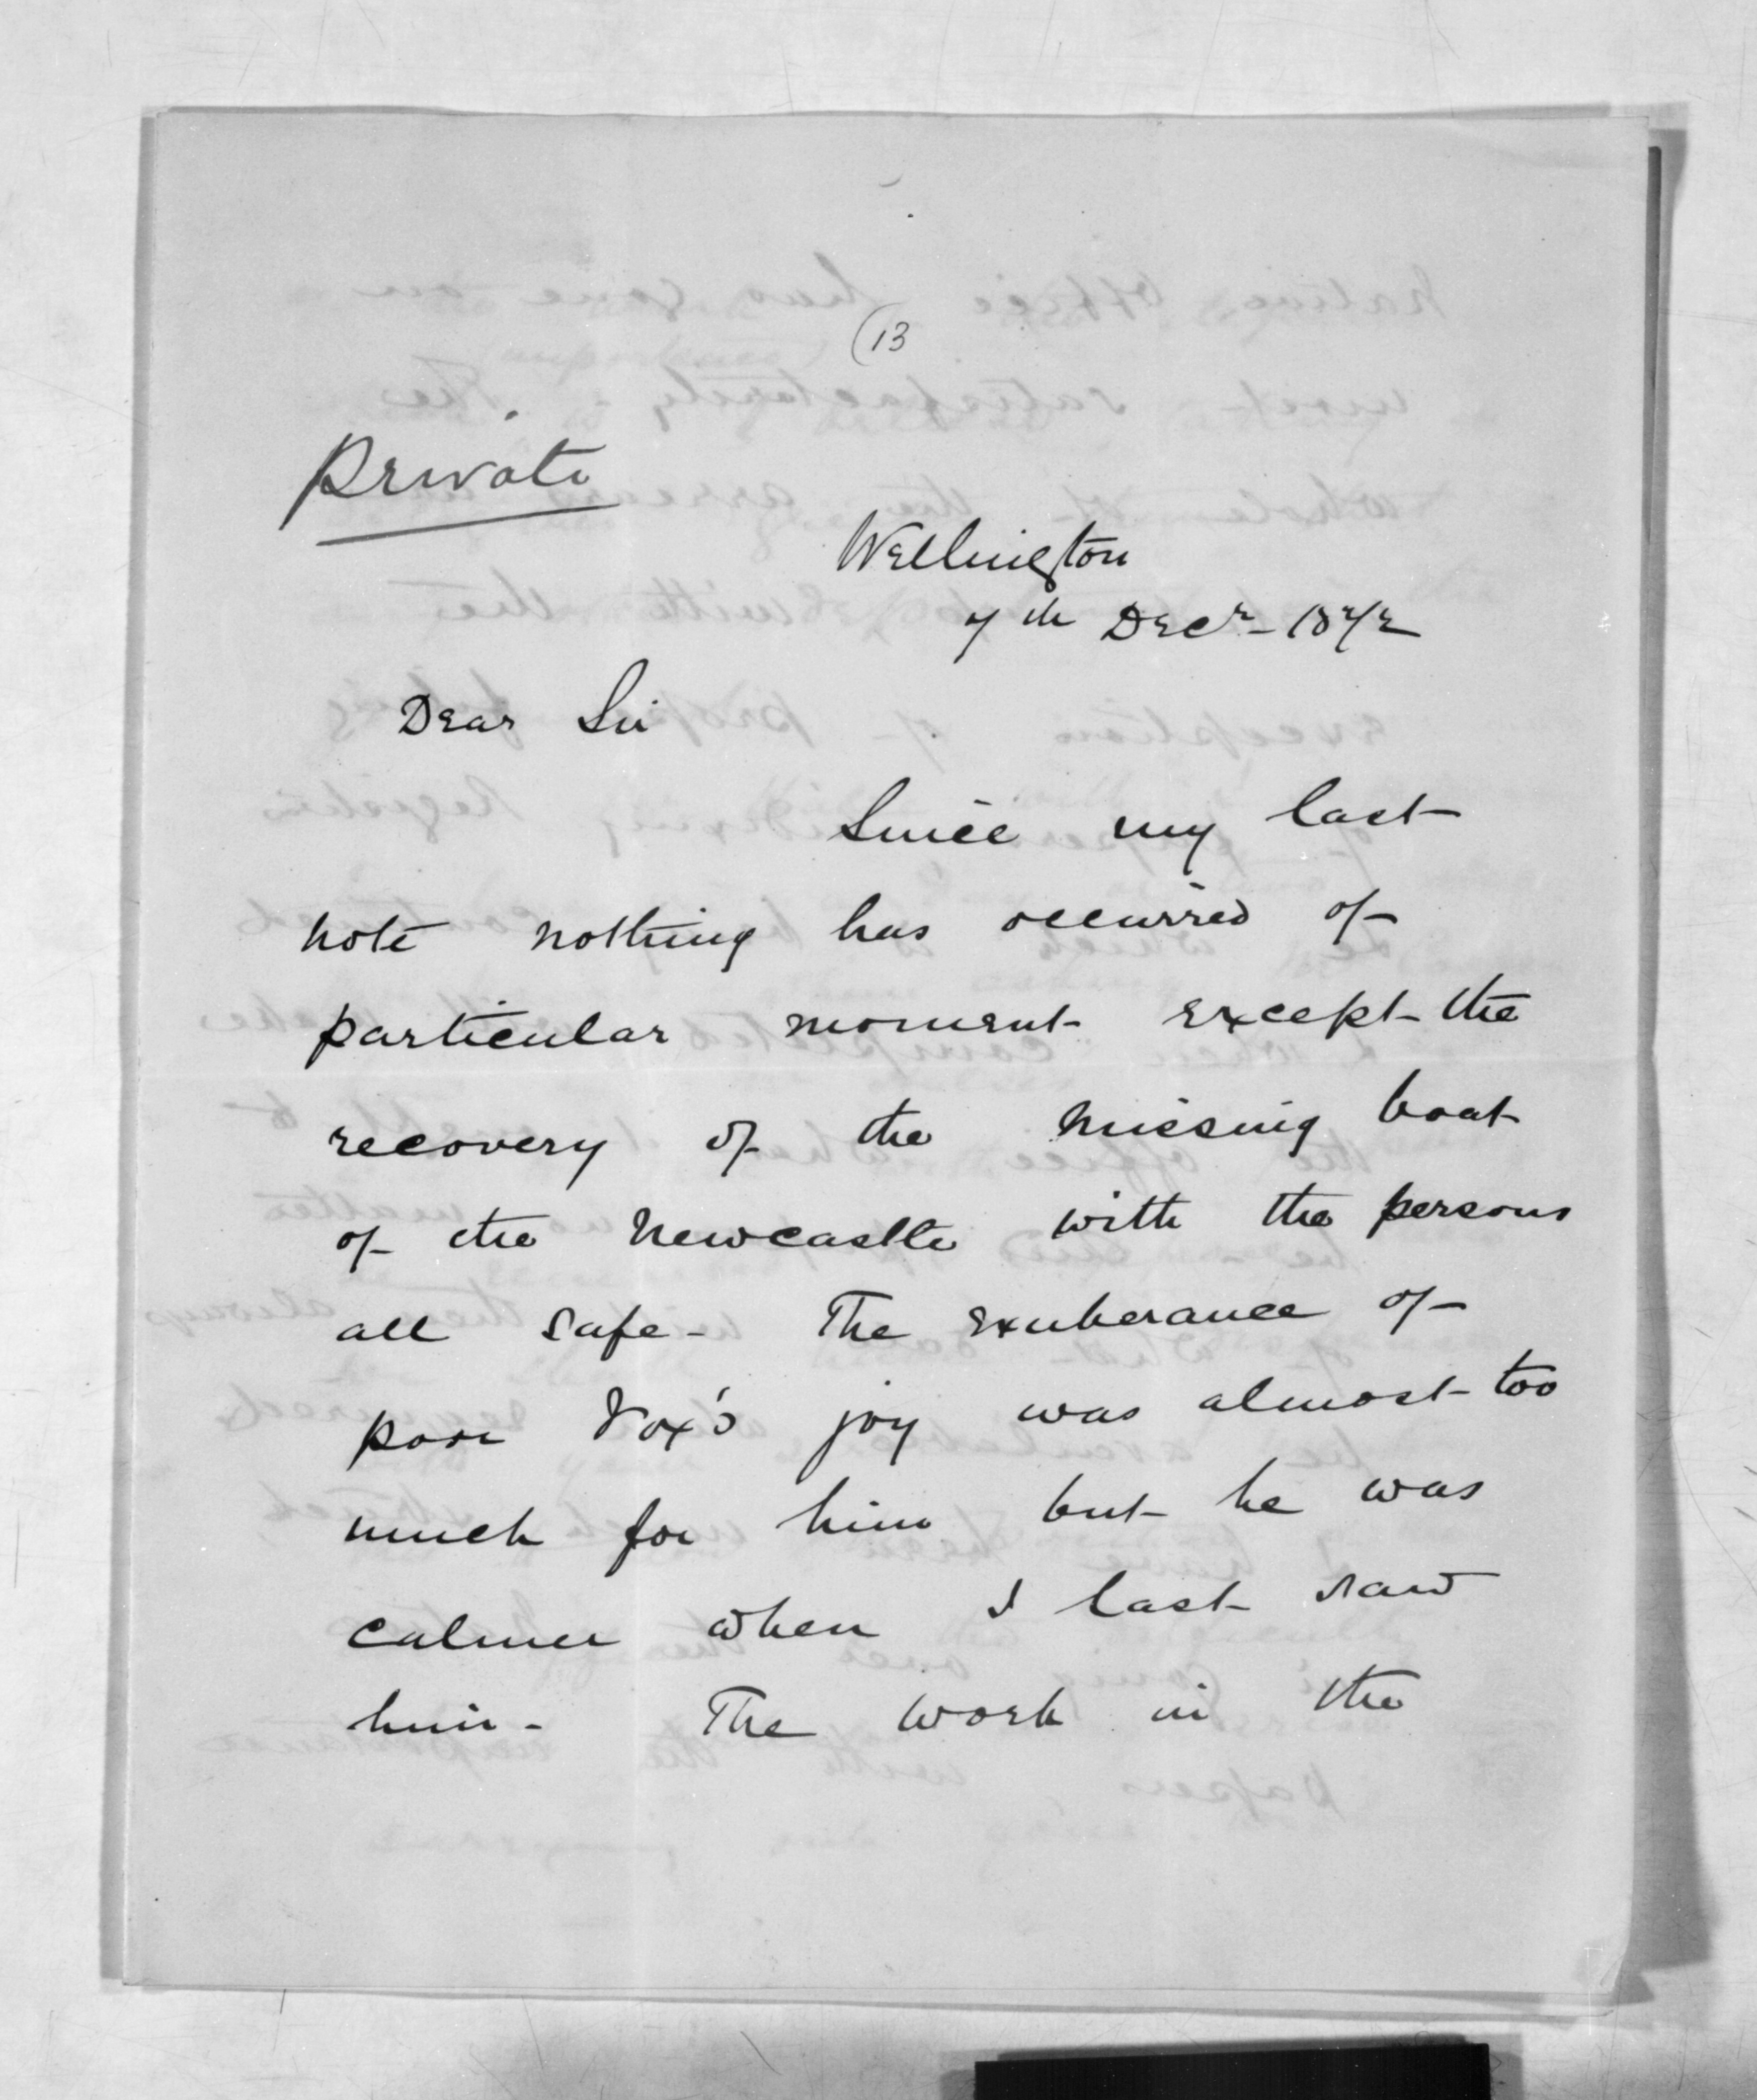 (13
Private
Wellington
7th Decr- 1872
Dear Sir
Since my last
note nothing has occurred of
particular moment except the
recovery of the missing boat
of the Newcastle with the persons
all safe- The exuberance of
poor Fox's joy was almost too
much for him but he was
calmer when I last saw
him- The work in the